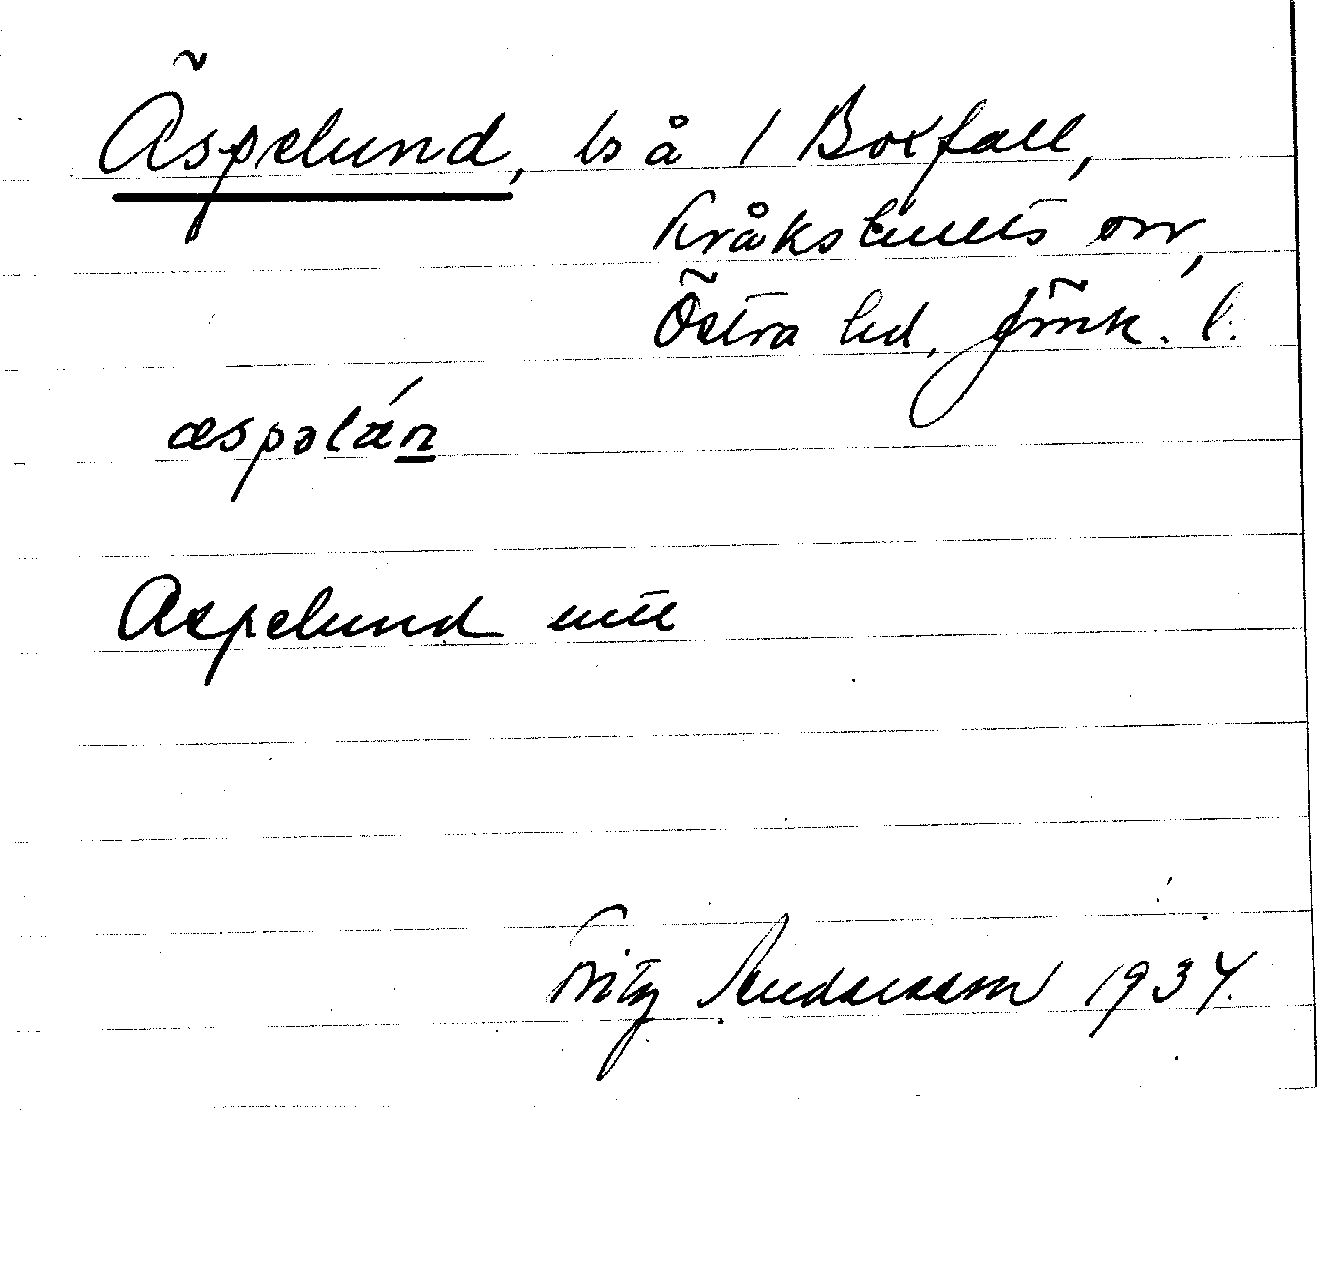 Äspelund, ls å 1 Boxfall,
Kråkshults sn,
Östra hd, Jönk. l.
æspəlán
Aspelund
Fritz Andersson 1934.